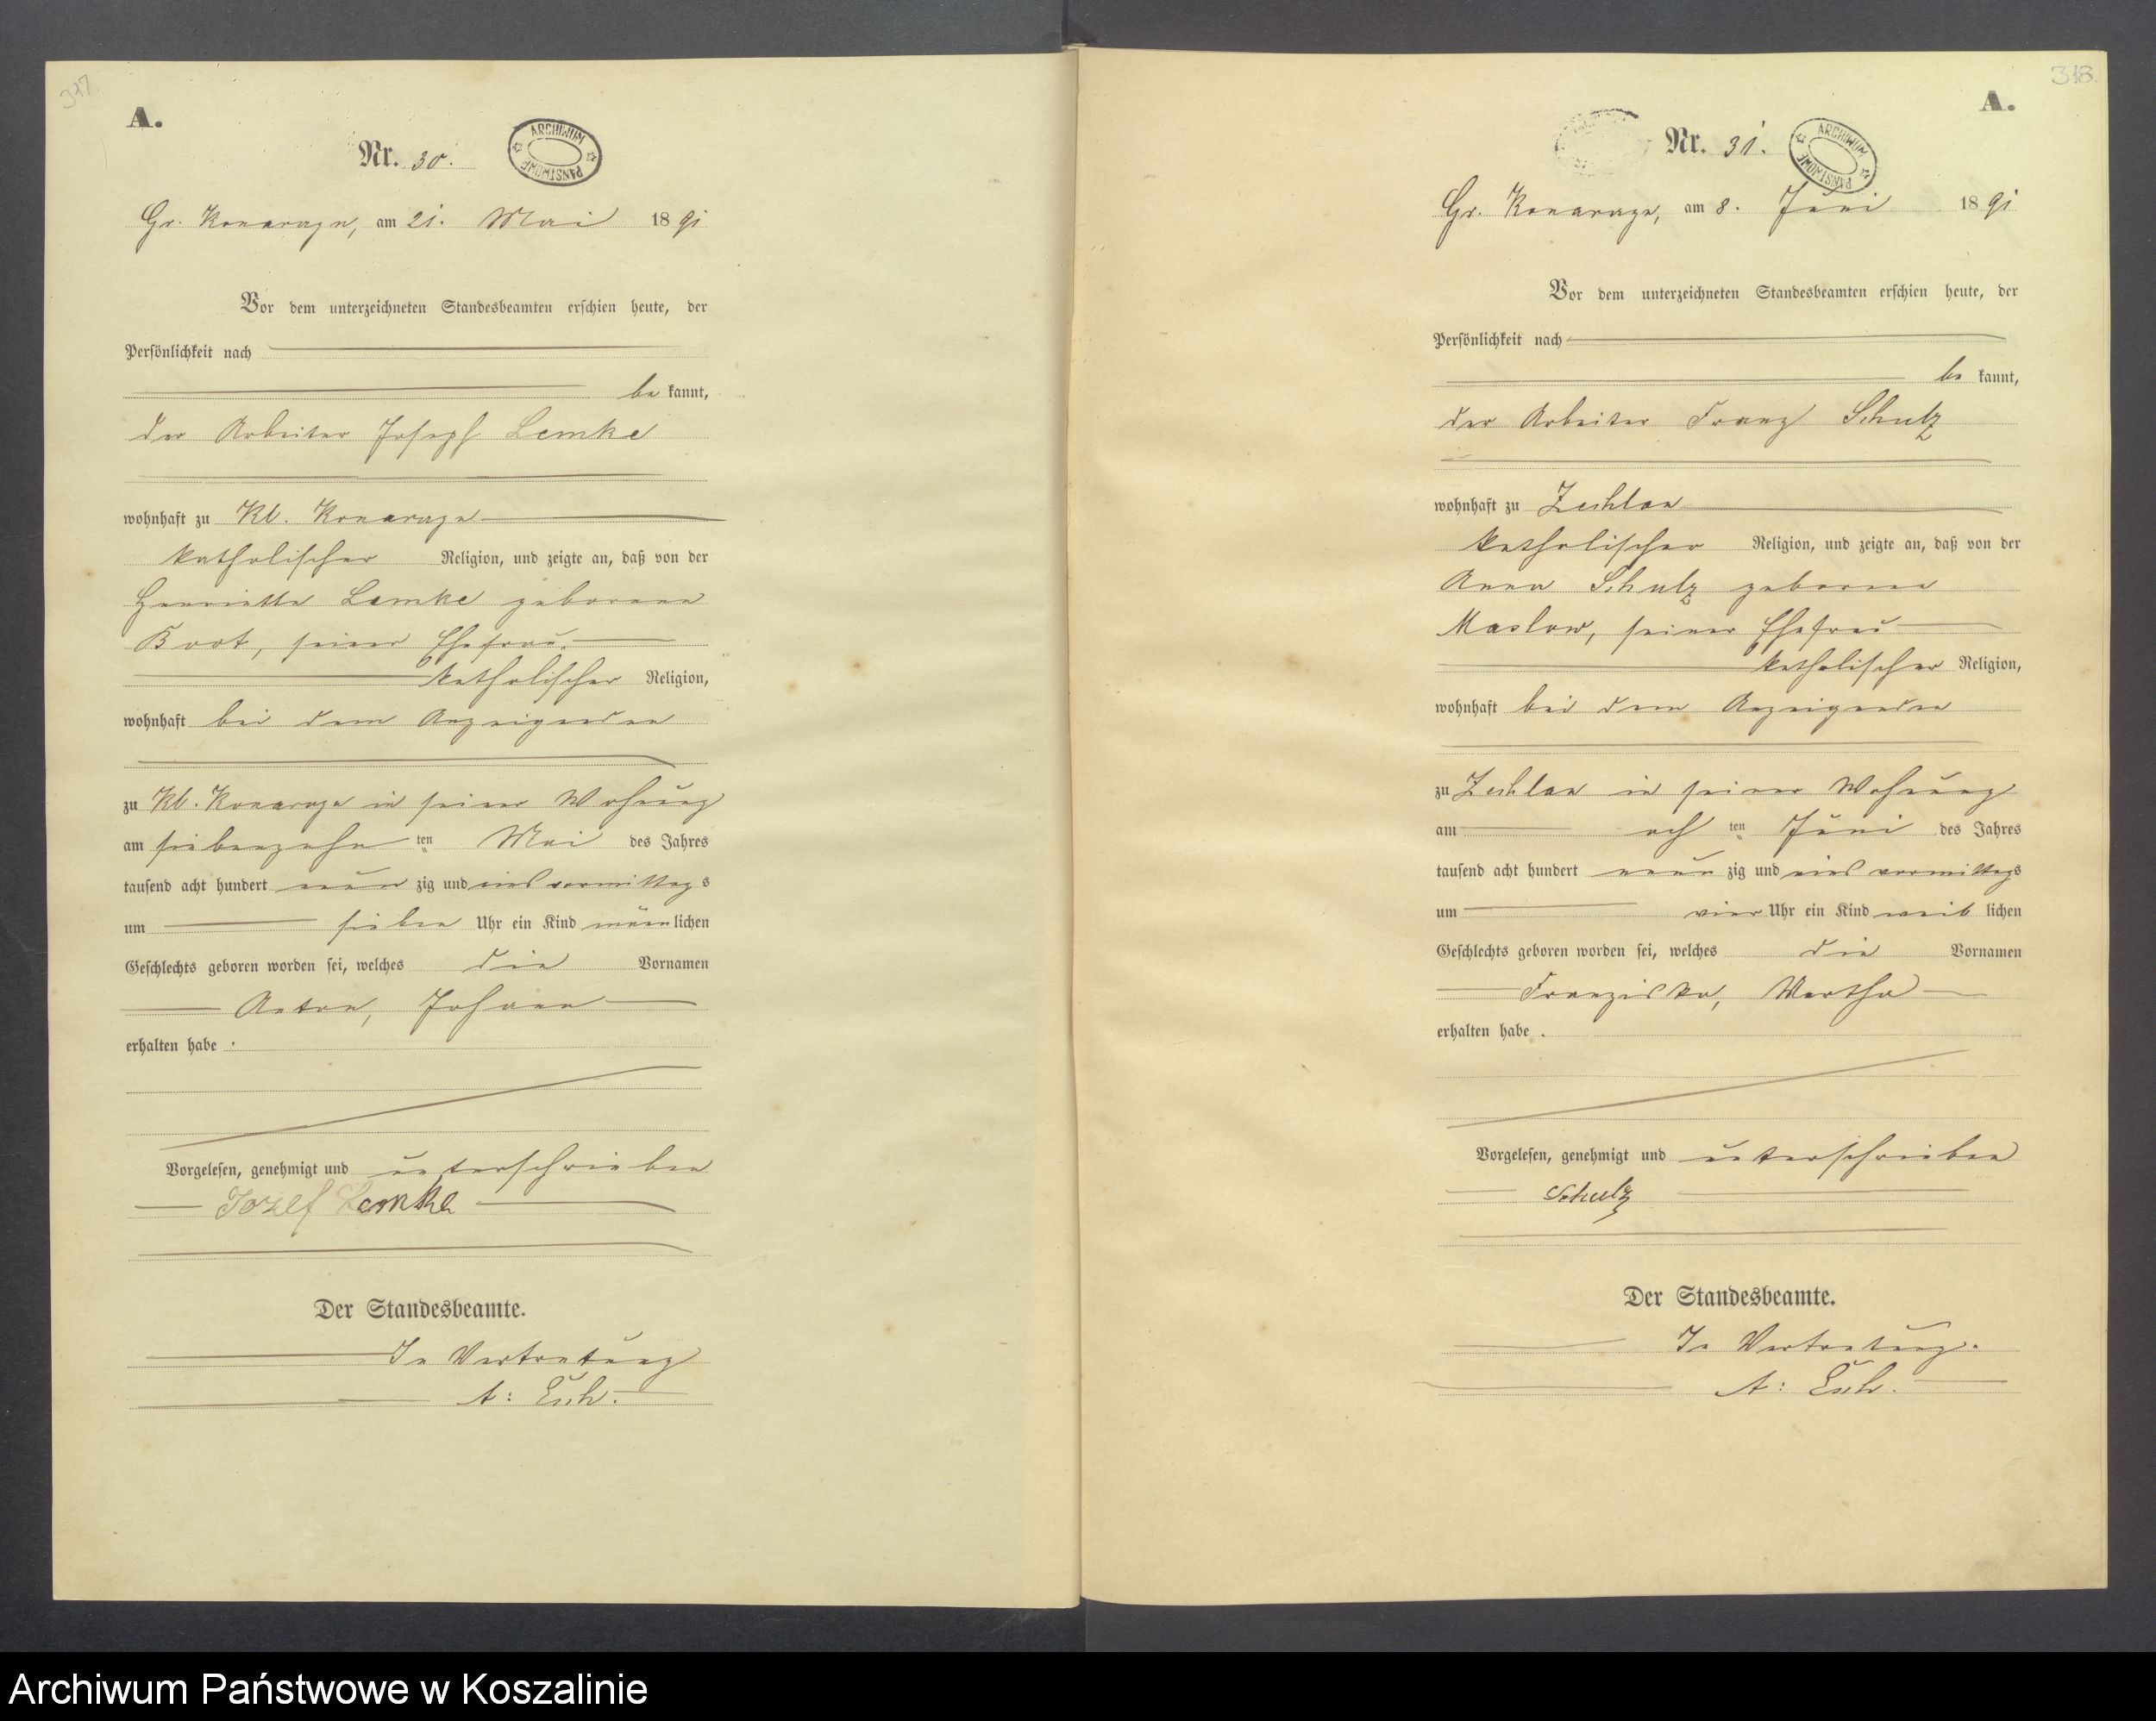 317.
A.
Nr. 30.
ARCHIWUM PAŃSTWOWE
Gr. Konarzyn, am 21. Mai 1891
Vor dem unterzeichneten Standesbeamten erschien heute, der
Persönlichkeit nach
be kannt,
der Arbeiter Joseph Lemke
wohnhaft zu Kl. Konarzyn
katholischer Religion, und zeigte an, daß von der
Henriette Lemke geborene
Bort, seiner Ehefrau
katholischer Religion,
wohnhaft bei dem Anzeigenden
zu Kl. Konarzyn in seiner Wohnung
am siebenzehn ten Mai des Jahres
tausend acht hundert neun zig und eins vormittags
um sieben Uhr ein Kind männlichen
Geschlechts geboren worden sei, welches die Vornamen
Anton, Johann
erhalten habe.
Vorgelesen, genehmigt und unterschrieben
Jozef Lemke
Der Standesbeamte.
In Vertretung
318.
A.
Nr. 31.
ARCHIWUM PAŃSTWOWE
Gr. Konarzyn, am 8. Juni 1891
Vor dem unterzeichneten Standesbeamten erschien heute, der
Persönlichkeit nach
be kannt,
der Arbeiter Franz Schulz
wohnhaft zu Zechlau
katholischer Religion, und zeigte an, daß von der
Anna Schulz geborene
Maslow, seiner Ehefrau
katholischer Religion,
wohnhaft bei dem Anzeigenden
zu Zechlau in seiner Wohnung
am ach ten Juni des Jahres
tausend acht hundert neun zig und eins vormittags
um vier Uhr ein Kind weib lichen
Geschlechts geboren worden sei, welches die Vornamen
Franziska, Martha
erhalten habe.
Vorgelesen, genehmigt und unterschrieben
Schulz
Der Standesbeamte.
In Vertretung.
Archiwum Państwowe w Koszalinie